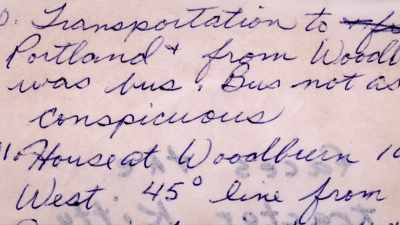 Transportation to
Portland + from Woodb
was bus. Bus not as
conspicuous
House at Woodburn
West. 45° line from